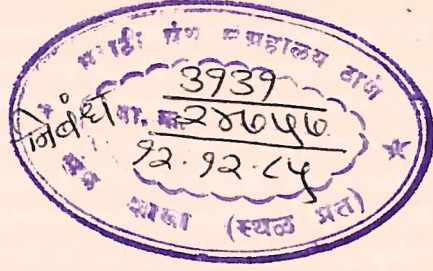 मराठी ग्रंथ संग्रहालय ठाणे
3939
निबंध
२४७५७
१२.१२.८५
शाखा (स्थळ प्रत)